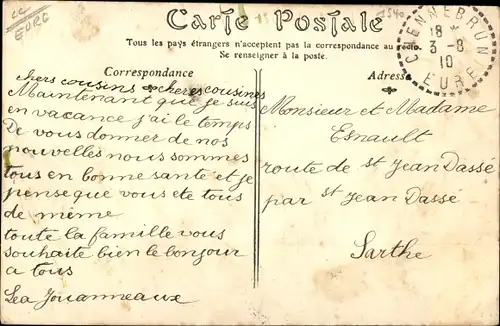 Carte Postale
Tous les pays étrangers n'acceptent pas la correspondance au recto.
Se renseigner à la poste.
Correspondance
chers cousins chères cousines
Maintenant que je suis
en vacance j'ai le temps
De vous donner de nos
nouvelles nous sommes
tous en bonne sante et je
pense que vous ete tous
de même
toute la famille vous
souhaite bien le bonjour
a tous
Lea Jouanneaux
Adresse
Monsieur et Madame
Esnault
route de st Jean Dassé
par st Jean Dassé
Sarthe
CIENNEBRUN
18 *
3-8
10
EURE
EURE